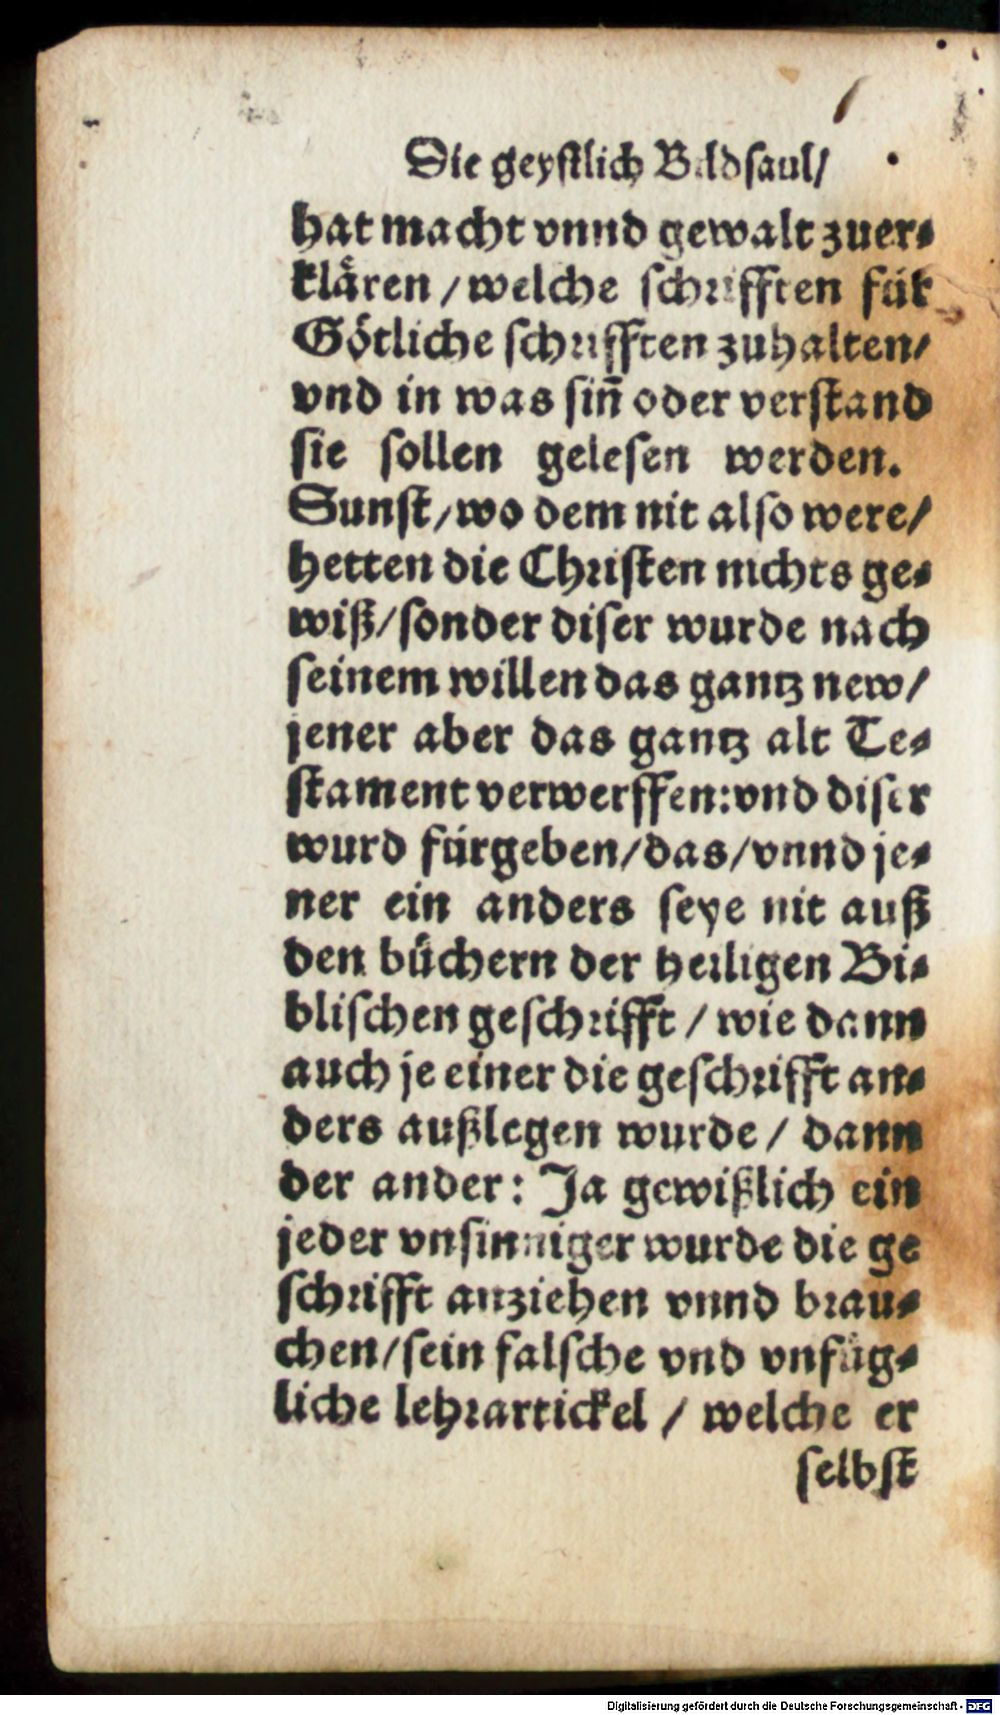 Die geystlich Bildsaul/
hat macht vnnd gewalt zuer-
klären / welche schrifften für
Götliche schrifften zuhalten/
vnd in was siñ oder verstand
sie sollen gelesen werden.
Sunst/wo dem nit also were/
hetten die Christen nichts ge-
wiß/sonder diser wurde nach
seinem willen das gantz new/
jener aber das gantz alt Te-
stament verwerffen:vnd diser
wurd fürgeben/das/vnnd je-
ner ein anders seye nit auß
den bůchern der heiligen Bi-
blischen geschrifft / wie dann
auch je einer die geschrifft an-
ders außlegen wurde / dann
der ander: Ja gewißlich ein
jeder vnsinniger wurde die ge
schrifft anziehen vnnd brau-
chen/sein falsche vnd vnfüg-
liche lehrartickel / welche er
selbst
Digitalisierung gefördert durch die Deutsche Forschungsgemeinschaft - DFG